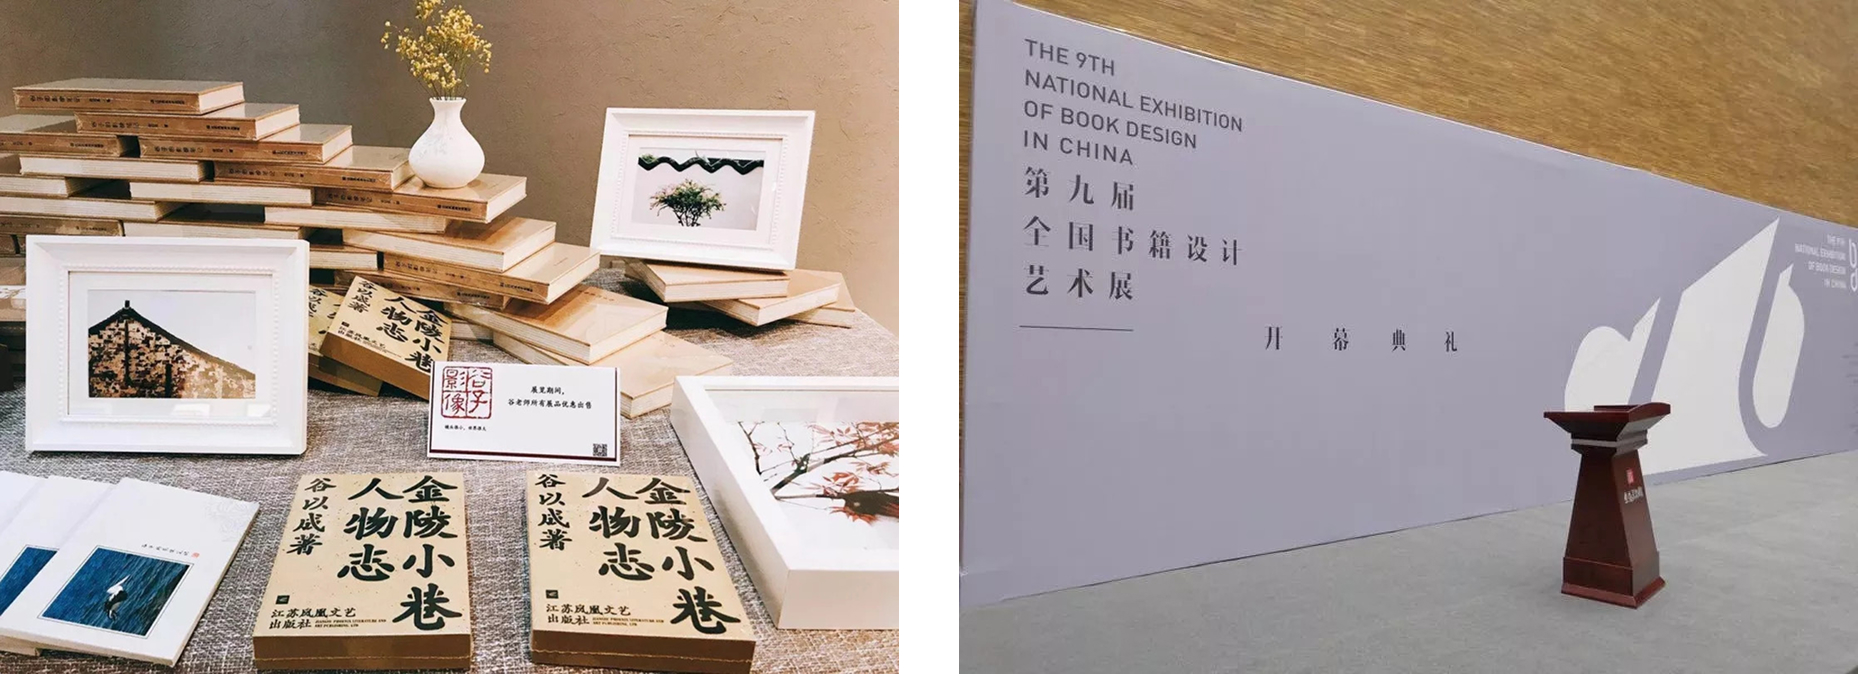 金陵小巷
人物志
谷以成著
谷子
影像
展览期间，
谷老师所有展品优惠出售
金陵小巷
人物志
谷以成著
江苏凤凰文艺
出版社
JIANGSU PHOENIX LITERATURE AND
ART PUBLISHING, LTD
金陵小巷
人物志
谷以成著
江苏凤凰文艺
出版社
JIANGSU PHOENIX LITERATURE AND
ART PUBLISHING, LTD
THE 9TH
NATIONAL EXHIBITION
OF BOOK DESIGN
IN CHINA
第九届
全国书籍设计
艺术展
开幕典礼
THE 9TH
NATIONAL EXHIBITION
OF BOOK DESIGN
IN CHINA